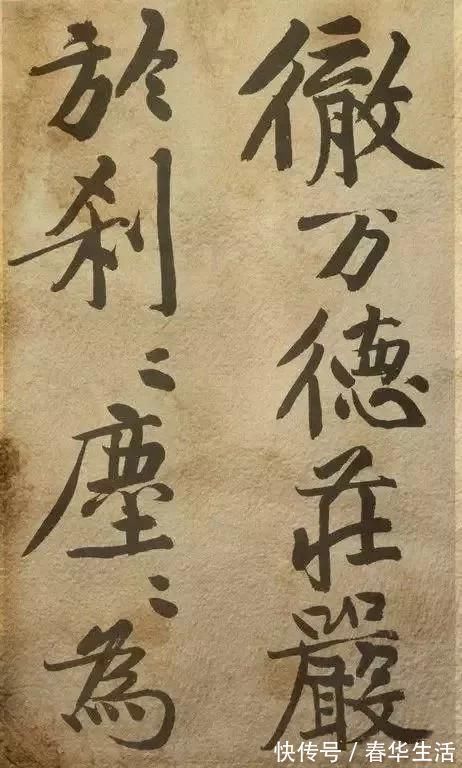 徹万德莊嚴
於刹〻塵〻為
快传号 / 春华生活